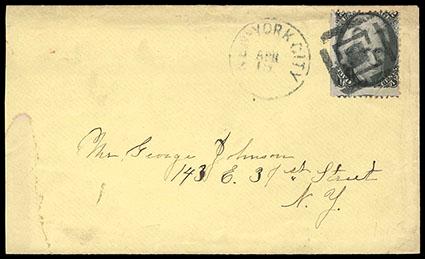 NEW-YORK CITY
APR
Mr. George Johnson
143 E. 31st Street
N. Y.